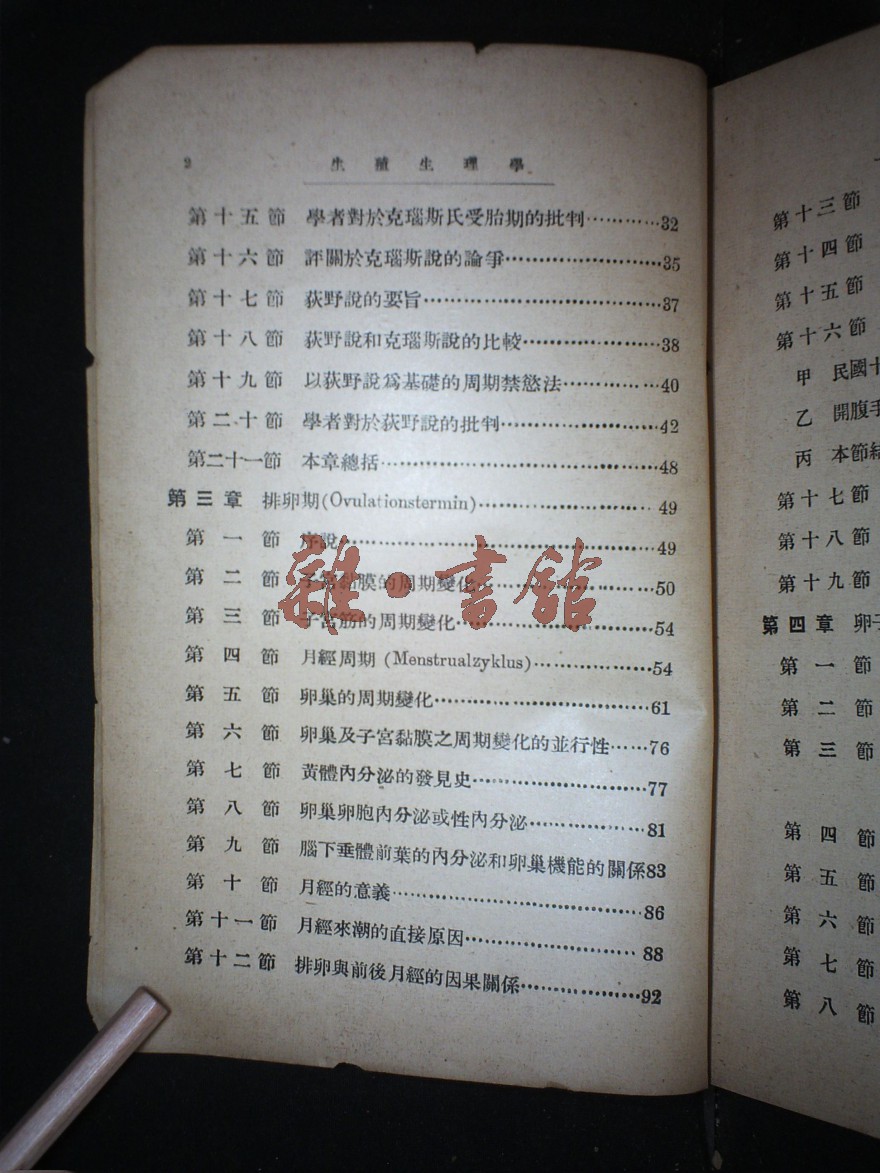 2 生殖生理學
第十五節 學者對於克瑙斯氏受胎期的批判…………32
第十六節 評關於克瑙斯說的論爭…………35
第十七節 荻野說的要旨…………37
第十八節 荻野說和克瑙斯說的比較…………38
第十九節 以荻野說爲基礎的周期禁慾法…………40
第二十節 學者對於荻野說的批判…………42
第二十一節 本章總括…………48
第三章 排卵期(Ovulationstermin)…………49
第一節 序說…………49
第二節 子宮黏膜的周期變化…………50
第三節 子宮筋的周期變化…………54
第四節 月經周期 (Menstrualzyklus)…………54
第五節 卵巢的周期變化…………61
第六節 卵巢及子宮黏膜之周期變化的並行性……76
第七節 黃體內分泌的發見史…………77
第八節 卵巢卵胞內分泌或性內分泌…………81
第九節 腦下垂體前葉的內分泌和卵巢機能的關係83
第十節 月經的意義…………86
第十一節 月經來潮的直接原因…………88
第十二節 排卵與前後月經的因果關係…………92
雜·書館
第十三節
第十四節
第十五節
第十六節
甲 民國十
乙 開腹手
丙 本節結
第十七節
第十八節
第十九節
第四章 卵子
第一節
第二節
第三節
第四節
第五節
第六節
第七節
第八節